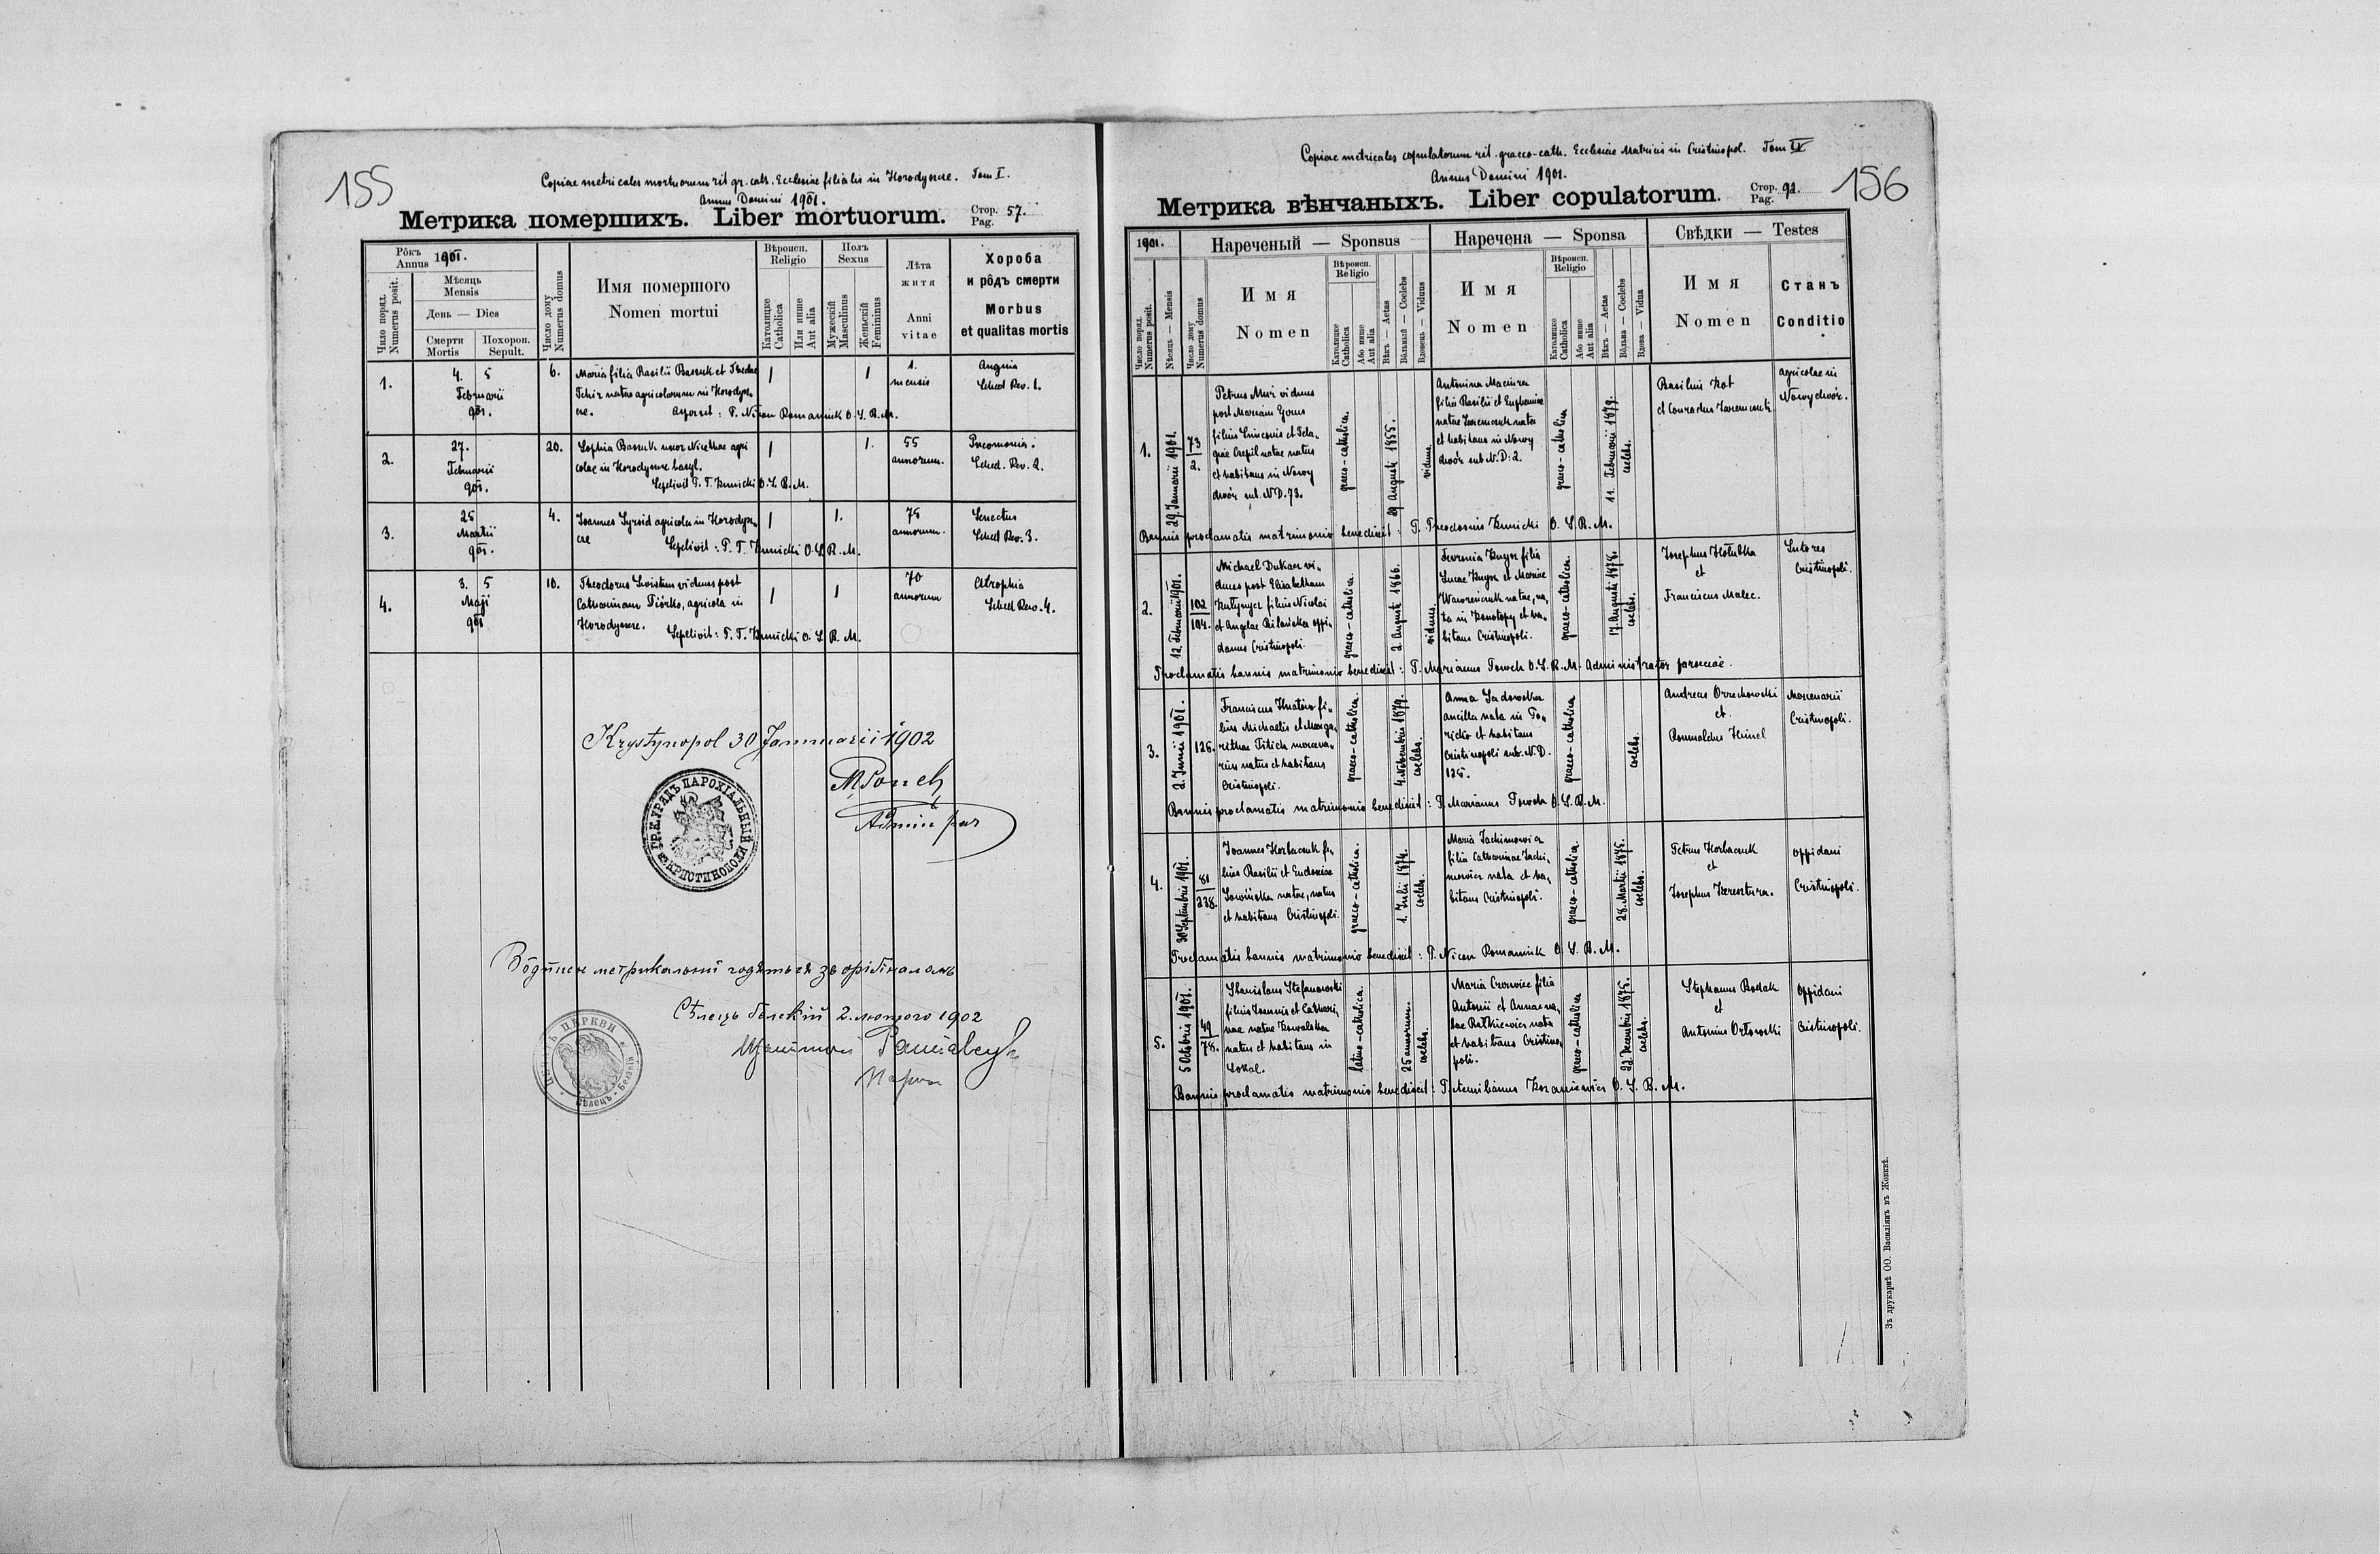 155
Copiae metricales mortuorum rit gr. cath. Ecclesiae filialis in Horodyszcze. Tom I.
Annus Domini 1901.
Метрика померших. Liber mortuorum. Стор. Pag. 57.
Рôкъ Annus 1901.
Число поряд. Numerus posit.
Мѣсяць Mensis
День — Dies
Смерти Mortis
Похорон. Sepult.
Число дому Numerus domus
Имя помершого
Nomen mortui
Вѣроисп. Religio
Католицке Catholica
Или инше Aut alia
Полъ Sexus
Мужескій Masculinus
Женьскій Femininus
Лѣта житя
Anni vitae
Хороба
и рôдъ смерти
Morbus
et qualitas mortis
1. 4. 5 Februarii 901. 6. Maria filia Basilii Bassuk et Theclae
natae agricolarum in Horodysz-
cze. : P. Nicon Romaniuk O. S. B. M.
1 1 1. mensis Angina
Sched Rev. 1.
2. 27. Februarii 901. 20. Sophia Bassuk uxor Nicethae agri
colae in Horodyszcze
Sepelivit P. T. Kunicki O. S. B. M.
1 1. 55 annorum.
Sched. Rev. 2.
3. 25 Martii 901. 4. Joannes Syroid agricola in Horodysz-
cze Sepelivit : P. T. Kunicki O. S. B. M.
1 1. 75 annorum. Senectus
Sched Rev. 3.
4. 3. 5 Maji 901 10. Theodorus viduus post
Catharinam agricola in
Horodyszcze. Sepelivit : P. T. Kunicki O. S. B. M.
1 1 70 annorum Atrophia
Sched Rev. 4.
Krystynopol 30 Januarii 1902
Admin par
ГР.К.УРЯДЪ ПАРОХІАЛЬНЫЙ
2. лютого 1902
156
Copiae metricales copulatorum rit. graeco-cath. Ecclesiae Matricis in Cristinopol. Tom IX
Annus Domini 1901.
Метрика вѣнчаныхъ. Liber copulatorum. Стор. Pag. 92.
1901.
Число поряд. Numerus posit.
Мѣсяць — Mensis
Число дому Numerus domus
Нареченый — Sponsus
Имя
Nomen
Вѣроисп. Religio
Католицке Catholica
Або инше Aut alia
Вѣкъ — Aetas
Вôльный — Coelebs
Вдовець — Viduus
Наречена — Sponsa
Имя
Nomen
Вѣроисп. Religio
Католицке Catholica
Або инше Aut alia
Вѣкъ — Aetas
Вôльна — Coelebs
Вдова — Vidua
Свѣдки — Testes
Имя
Nomen
Станъ
Conditio
1. 29. Januarii 1901. 73 2
Petrus Mur viduus
post Mariam
filius et Pela-
giae natae natus
et habitans in Nowy
dwór sub. N.D. 73.
graeco-catholica. 29 Augusti 1855. viduus.
Antonina Maciura
filia Basilii et Euphemiae
natae Jaremczuk nata
et habitans in Nowy
dwór sub N.D: 2.
graeco-catholica 11. Februarii 1879. coelebs.
Basilius Kot
et Conradus Jaremczuk
agricolae in
Nowydwór.
Bannis proclamatis matrimonio benedixit : P. Theodosius Kunicki O. S. B. M.
2. 12. Februarii 1901. 102 104.
Michael Dukacz vi-
duus post Elisabetham
filius Nicolai
et Angelae Bilavska oppi-
danus Cristinopoli.
graeco-catholica. 2. Augusti 1866. viduus.
Fevronia Knysz filia
Lucae Knysz et Mariae
Wawreńczuk natae, na-
ta in Konotopy et ha-
bitans Cristinopoli.
graeco-catholica. 17. Augusti 1878. coelebs.
Josephus Hołubka
et
Franciscus Malec.
Sutores
Cristinopoli.
Proclamatis bannis matrimonio benedixit : P. Marianus Powch O. S. B. M. Administrator parociae.
3. 2. Junii 1901. 126.
Franciscus Hnatów fi-
lius Michaelis et Marga-
rithae Titich mercena-
rius natus et habitans
Cristinopoli.
graeco-catholica. 4. Novembris 1879. coelebs.
Anna Sadowska
ancilla nata in To-
ricko et habitans
Cristinopoli sub. N.D.
126.
graeco-catholica coelebs.
Andreas Orzechowski
et
Romualdus
Mercenarii
Cristinopoli.
Bannis proclamatis matrimonio benedixit : P. Marianus Powch O. S. B. M.
4. 30 Septembris 1901. 81 238.
Joannes Horbaczuk fi-
lius Basilii et Eudoxiae
Sawińska natae, natus
et habitans Cristinopoli.
graeco-catholica. 1. Julii 1874. coelebs.
Maria Jachimowicz
filia Catharinae Jachi-
mowicz nata et ha-
bitans Cristinopoli.
graeco-catholica. 28. Martii 1875. coelebs.
Petrus Horbaczuk
et
Josephus
oppidani
Cristinopoli.
Proclamatis bannis matrimonio benedixit : P. Nicon Romaniuk O. S. B. M.
5. 5 Octobris 1901. 49 78.
Stanislaus Stefanowski
filius Joannis et Cathari-
nae natae Kowalska
natus et habitans in
Sokal.
latino-catholica. 25 annorum. coelebs.
Maria Czerwiec filia
Antonii et Annae na-
tae Ratkiewicz nata
et habitans Cristino-
poli.
graeco-catholica 22. Decembris 1875. coelebs.
Stephanus Bodak
et
Antonius Ortowski
Oppidani
Cristinopoli.
Bannis proclamatis matrimonio benedixit : P. Aemilianus Kozaniewicz O. S. B. M.
Зъ друкарнѣ ОО. Василіянъ въ Жовквѣ.